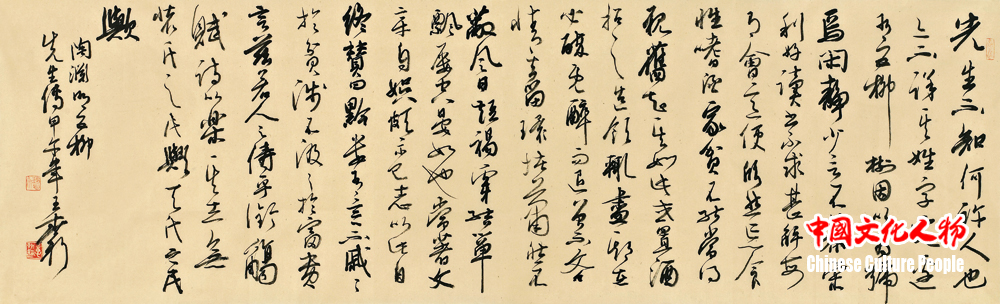 先生不知何許人也
亦不詳其姓字宅邊
有五柳樹因以為號
焉閑靜少言不慕榮
利好讀书不求甚解每
有會意便欣然忘食
性嗜酒家貧不能常得
親舊知其如此或置酒
招之造飲輒盡期在
必醉既醉而退曾不吝
情去留環堵蕭然不
蔽風日短褐穿結簞
瓢屢空晏如也常著文
章自娛頗示己志以此自
終贊曰黔婁有言不戚々
於貧賤不汲々於富貴
言茲若人之儔乎銜觴
賦詩以樂其志無
懷氏之民歟葛天氏之民
歟
陶淵明五柳
先生傳甲午年王
中國文化人物
Chinese Culture People